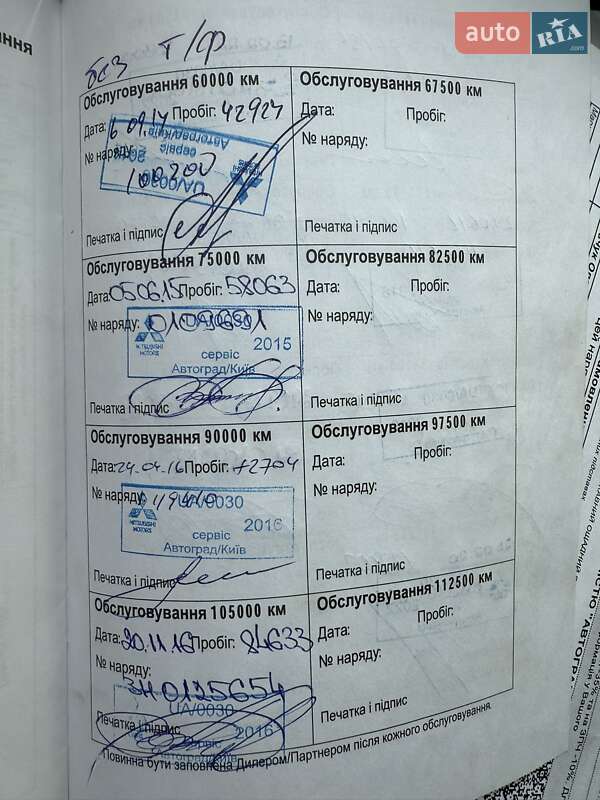 auto RIA .com
без т/ф
Обслуговування 60000 км
Дата: 6 09.14 Пробіг: 42927
№ наряду:
100200
UA/0030
сервіс
Автоград/Київ
Печатка і підпис
Обслуговування 67500 км
Дата: Пробіг:
№ наряду:
Печатка і підпис
Обслуговування 75000 км
Дата: 05.06.15 Пробіг: 58063
№ наряду: 0109691
MITSUBISHI MOTORS
2015
сервіс
Автоград/Київ
Печатка і підпис
Обслуговування 82500 км
Дата: Пробіг:
№ наряду:
Печатка і підпис
Обслуговування 90000 км
Дата: 24.04.16 Пробіг: 72704
№ наряду:
UA/0030
MITSUBISHI MOTORS
2016
сервіс
Автоград/Київ
Печатка і підпис
Обслуговування 97500 км
Дата: Пробіг:
№ наряду:
Печатка і підпис
Обслуговування 105000 км
Дата: 20.11.16 Пробіг: 84633
№ наряду:
ЗН0125654
UA/0030
2016
сервіс
Печатка і підпис
Обслуговування 112500 км
Дата: Пробіг:
№ наряду:
Печатка і підпис
Повинна бути заповнена Дилером/Партнером після кожного обслуговування.